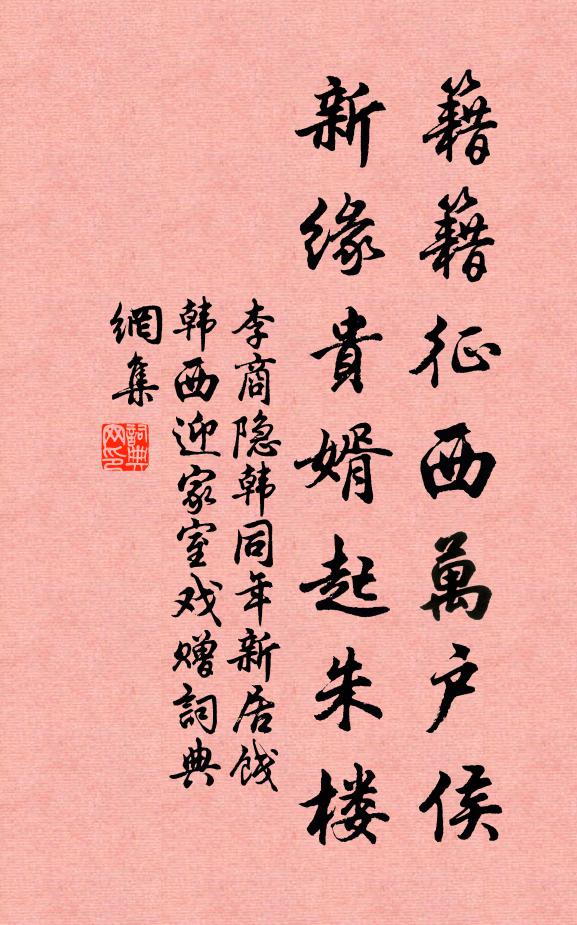 籍籍征西萬户侯
新緣貴婿起朱楼
李商隐韩同年新居饯
韩西迎家室戏赠詞典
網集
詞典
网印